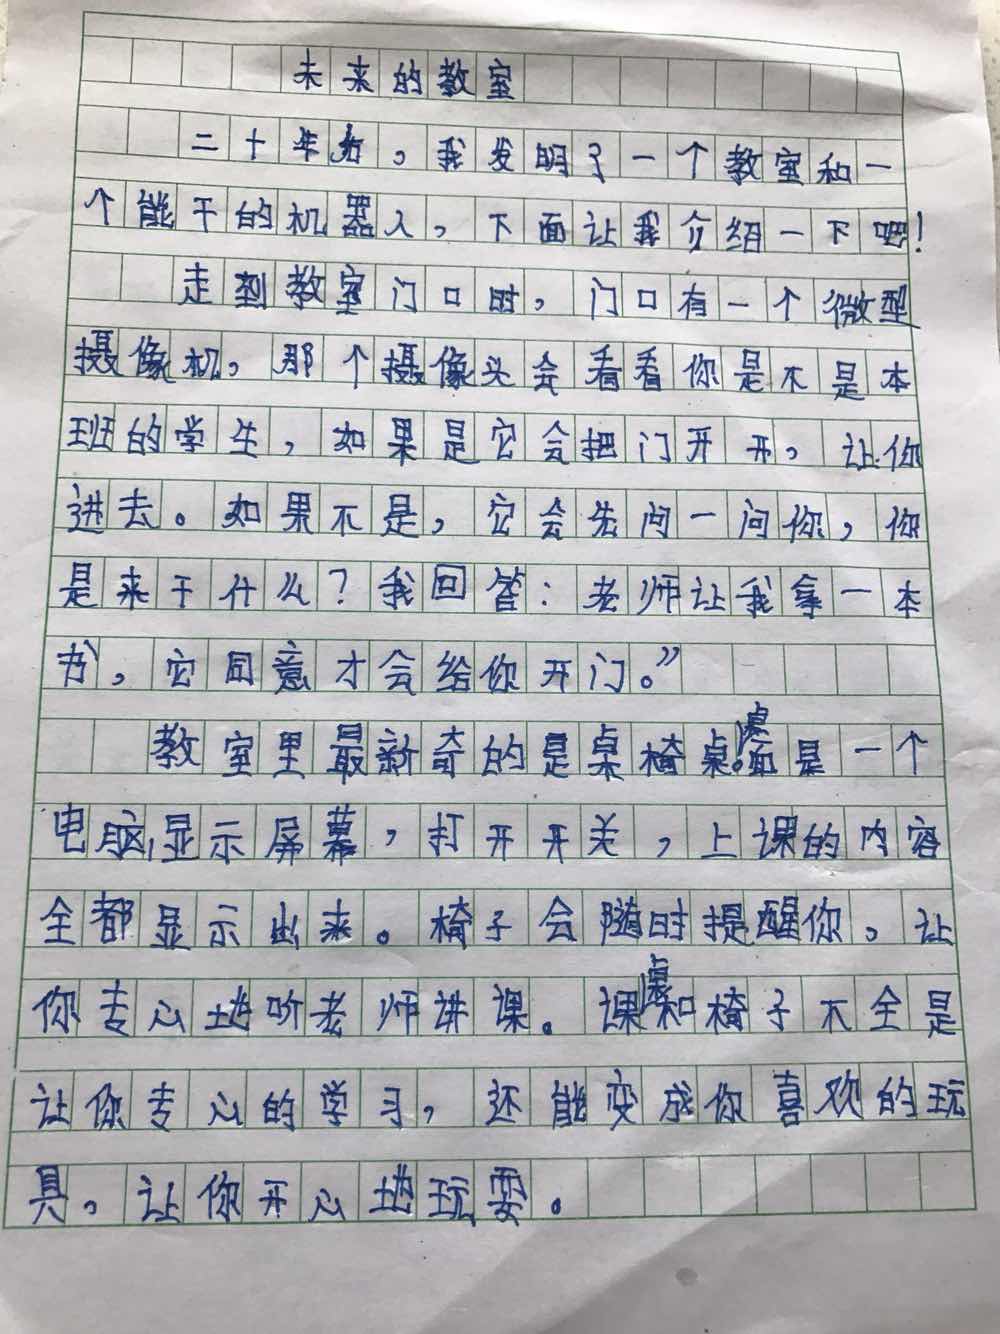 未来的教室
二十年后，我发明了一个教室和一
个能干的机器人，下面让我介绍一下吧！
走到教室门口时，门口有一个微型
摄像机，那个摄像头会看看你是不是本
班的学生，如果是它会把门开开，让你
进去。如果不是，它会先问一问你，你
是来干什么？我回答：老师让我拿一本
书，它同意才会给你开门。”
教室里最新奇的是桌椅桌。桌面是一个
电脑显示屏幕，打开开关，上课的内容
全都显示出来。椅子会随时提醒你，让
你专心地听老师讲课。课桌和椅子不全是
让你专心的学习，还能变成你喜欢的玩
具，让你开心地玩耍。